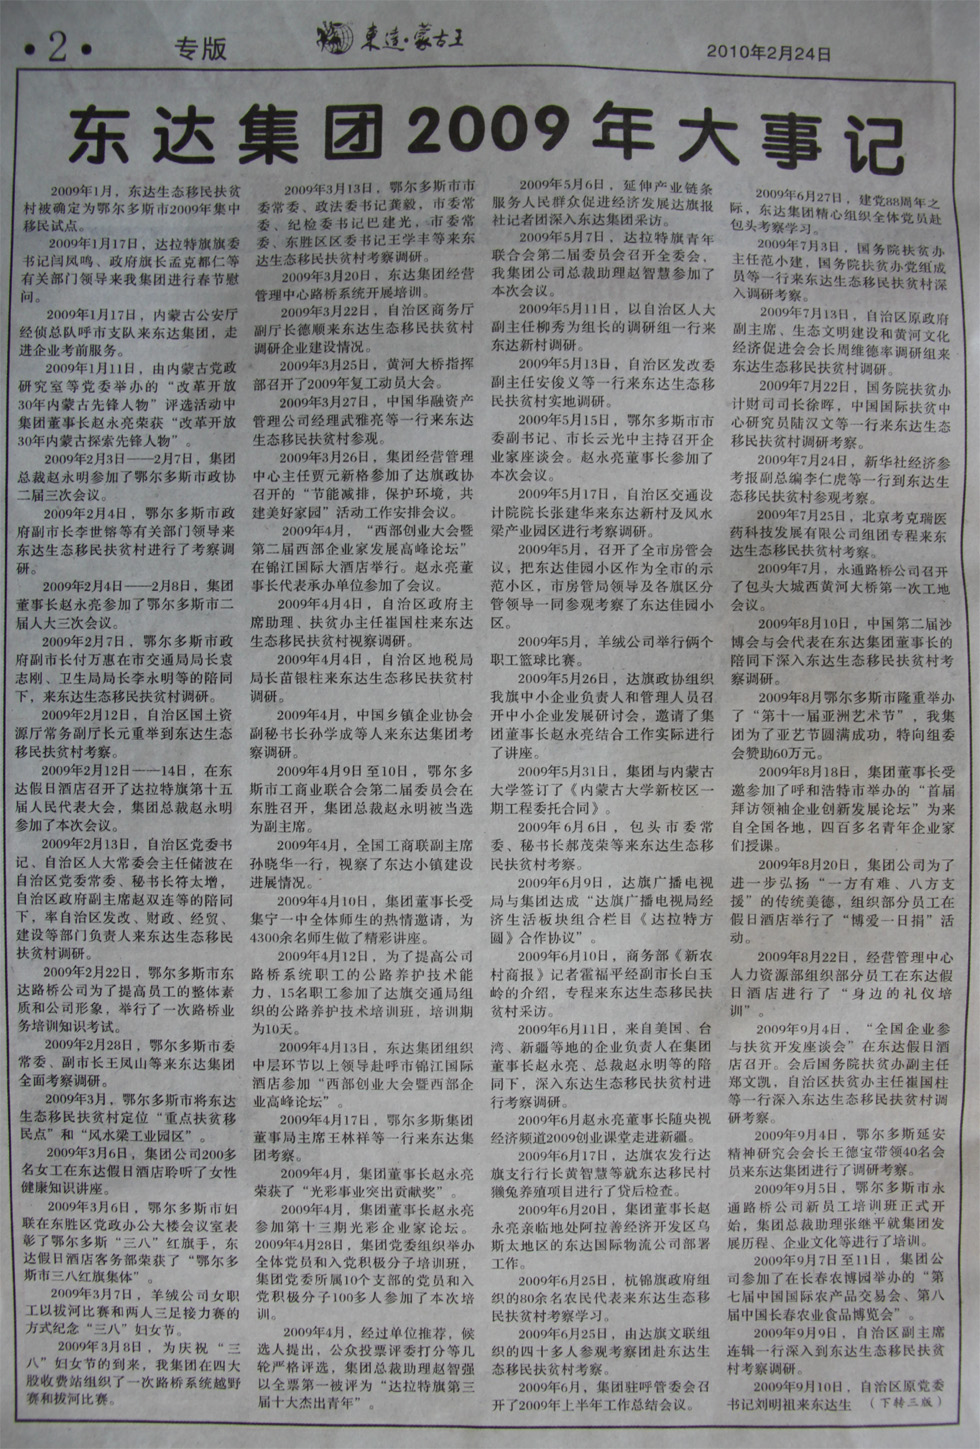 ·2·
专版
東達·蒙古王
2010年2月24日
东达集团2009年大事记
2009年1月，东达生态移民扶贫
村被确定为鄂尔多斯市2009年集中
移民试点。
2009年1月17日，达拉特旗旗委
书记闫凤鸣、政府旗长孟克都仁等
有关部门领导来我集团进行春节慰
问。
2009年1月17日，内蒙古公安厅
经侦总队呼市支队来东达集团，走
进企业考前服务。
2009年1月11日，由内蒙古党政
研究室等党委举办的“改革开放
30年内蒙古先锋人物”评选活动中
集团董事长赵永亮荣获“改革开放
30年内蒙古探索先锋人物”。
2009年2月3日——2月7日，集团
总裁赵永明参加了鄂尔多斯市政协
二届三次会议。
2009年2月4日，鄂尔多斯市政
府副市长李世镕等有关部门领导来
东达生态移民扶贫村进行了考察调
研。
2009年2月4日——2月8日，集团
董事长赵永亮参加了鄂尔多斯市二
届人大三次会议。
2009年2月7日，鄂尔多斯市政
府副市长付万惠在市交通局局长袁
志刚、卫生局局长李永明等的陪同
下，来东达生态移民扶贫村调研。
2009年2月12日，自治区国土资
源厅常务副厅长元重举到东达生态
移民扶贫村考察。
2009年2月12日——14日，在东
达假日酒店召开了达拉特旗第十五
届人民代表大会，集团总裁赵永明
参加了本次会议。
2009年2月13日，自治区党委书
记、自治区人大常委会主任储波在
自治区党委常委、秘书长符太增，
自治区政府副主席赵双连等的陪同
下，率自治区发改、财政、经贸、
建设等部门负责人来东达生态移民
扶贫村调研。
2009年2月22日，鄂尔多斯市东
达路桥公司为了提高员工的整体素
质和公司形象，举行了一次路桥业
务培训知识考试。
2009年2月28日，鄂尔多斯市委
常委、副市长王凤山等来东达集团
全面考察调研。
2009年3月，鄂尔多斯市将东达
生态移民扶贫村定位“重点扶贫移
民点”和“风水梁工业园区”。
2009年3月6日，集团公司200多
名女工在东达假日酒店聆听了女性
健康知识讲座。
2009年3月6日，鄂尔多斯市妇
联在东胜区党政办公大楼会议室表
彰了鄂尔多斯“三八”红旗手，东
达假日酒店客务部荣获了“鄂尔多
斯市三八红旗集体”。
2009年3月7日，羊绒公司女职
工以拔河比赛和两人三足接力赛的
方式纪念“三八”妇女节。
2009年3月8日，为庆祝“三
八”妇女节的到来，我集团在四大
股收费站组织了一次路桥系统越野
赛和拔河比赛。
2009年3月13日，鄂尔多斯市市
委常委、政法委书记龚毅，市委常
委、纪检委书记巴建光，市委常
委、东胜区区委书记王学丰等来东
达生态移民扶贫村考察调研。
2009年3月20日，东达集团经营
管理中心路桥系统开展培训。
2009年3月22日，自治区商务厅
副厅长德顺来东达生态移民扶贫村
调研企业建设情况。
2009年3月25日，黄河大桥指挥
部召开了2009年复工动员大会。
2009年3月27日，中国华融资产
管理公司经理武雅亮等一行来东达
生态移民扶贫村参观。
2009年3月26日，集团经营管理
中心主任贾元新格参加了达旗政协
召开的“节能减排，保护环境，共
建美好家园”活动工作安排会议。
2009年4月，“西部创业大会暨
第二届西部企业家发展高峰论坛”
在锦江国际大酒店举行。赵永亮董
事长代表承办单位参加了会议。
2009年4月4日，自治区政府主
席助理、扶贫办主任崔国柱来东达
生态移民扶贫村视察调研。
2009年4月4日，自治区地税局
局长苗银柱来东达生态移民扶贫村
调研。
2009年4月，中国乡镇企业协会
副秘书长孙学成等人来东达集团考
察调研。
2009年4月9日至10日，鄂尔多
斯市工商业联合会第二届委员会在
东胜召开，集团总裁赵永明被当选
为副主席。
2009年4月，全国工商联副主席
孙晓华一行，视察了东达小镇建设
进展情况。
2009年4月10日，集团董事长受
集宁一中全体师生的热情邀请，为
4300余名师生做了精彩讲座。
2009年4月12日，为了提高公司
路桥系统职工的公路养护技术能
力，15名职工参加了达旗交通局组
织的公路养护技术培训班，培训期
为10天。
2009年4月13日，东达集团组织
中层环节以上领导赴呼市锦江国际
酒店参加“西部创业大会暨西部企
业高峰论坛”。
2009年4月17日，鄂尔多斯集团
董事局主席王林祥等一行来东达集
团考察。
2009年4月，集团董事长赵永亮
荣获了“光彩事业突出贡献奖”。
2009年4月，集团董事长赵永亮
参加第十三期光彩企业家论坛。
2009年4月28日，集团党委组织举办
全体党员和入党积极分子培训班，
集团党委所属10个支部的党员和入
党积极分子100多人参加了本次培
训。
2009年4月，经过单位推荐，候
选人提出，公众投票评委打分等几
轮严格评选，集团总裁助理赵智强
以全票第一被评为“达拉特旗第三
届十大杰出青年”。
2009年5月6日，延伸产业链条
服务人民群众促进经济发展达旗报
社记者团深入东达集团采访。
2009年5月7日，达拉特旗青年
联合会第二届委员会召开全委会，
我集团公司总裁助理赵智慧参加了
本次会议。
2009年5月11日，以自治区人大
副主任柳秀为组长的调研组一行来
东达新村调研。
2009年5月13日，自治区发改委
副主任安俊义等一行来东达生态移
民扶贫村实地调研。
2009年5月15日，鄂尔多斯市市
委副书记、市长云光中主持召开企
业家座谈会。赵永亮董事长参加了
本次会议。
2009年5月17日，自治区交通设
计院院长张建华来东达新村及风水
梁产业园区进行考察调研。
2009年5月，召开了全市房管会
议，把东达佳园小区作为全市的示
范小区，市房管局领导及各旗区分
管领导一同参观考察了东达佳园小
区。
2009年5月，羊绒公司举行俩个
职工篮球比赛。
2009年5月26日，达旗政协组织
我旗中小企业负责人和管理人员召
开中小企业发展研讨会，邀请了集
团董事长赵永亮结合工作实际进行
了讲座。
2009年5月31日，集团与内蒙古
大学签订了《内蒙古大学新校区一
期工程委托合同》。
2009年6月6日，包头市委常
委、秘书长郝茂荣等来东达生态移
民扶贫村考察。
2009年6月9日，达旗广播电视
局与集团达成“达旗广播电视局经
济生活板块组合栏目《达拉特方
圆》合作协议”。
2009年6月10日，商务部《新农
村商报》记者霍福平经副市长白玉
岭的介绍，专程来东达生态移民扶
贫村采访。
2009年6月11日，来自美国、台
湾、新疆等地的企业负责人在集团
董事长赵永亮、总裁赵永明等的陪
同下，深入东达生态移民扶贫村进
行考察调研。
2009年6月赵永亮董事长随央视
经济频道2009创业课堂走进新疆。
2009年6月17日，达旗农发行达
旗支行行长黄智慧等就东达移民村
獭兔养殖项目进行了贷后检查。
2009年6月20日，集团董事长赵
永亮亲临地处阿拉善经济开发区乌
斯太地区的东达国际物流公司部署
工作。
2009年6月25日，杭锦旗政府组
织的80余名农民代表来东达生态移
民扶贫村考察学习。
2009年6月25日，由达旗文联组
织的四十多人参观考察团赴东达生
态移民扶贫村考察。
2009年6月，集团驻呼管委会召
开了2009年上半年工作总结会议。
2009年6月27日，建党88周年之
际，东达集团精心组织全体党员赴
包头考察学习。
2009年7月3日，国务院扶贫办
主任范小建，国务院扶贫办党组成
员等一行来东达生态移民扶贫村深
入调研考察。
2009年7月13日，自治区原政府
副主席、生态文明建设和黄河文化
经济促进会会长周维德率调研组来
东达生态移民扶贫村调研。
2009年7月22日，国务院扶贫办
计财司司长徐晖，中国国际扶贫中
心研究员陆汉文等一行来东达生态
移民扶贫村调研考察。
2009年7月24日，新华社经济参
考报副总编李仁虎等一行到东达生
态移民扶贫村参观考察。
2009年7月25日，北京考克瑞医
药科技发展有限公司组团专程来东
达生态移民扶贫村考察。
2009年7月，永通路桥公司召开
了包头大城西黄河大桥第一次工地
会议。
2009年8月10日，中国第二届沙
博会与会代表在东达集团董事长的
陪同下深入东达生态移民扶贫村考
察调研。
2009年8月鄂尔多斯市隆重举办
了“第十一届亚洲艺术节”，我集
团为了亚艺节圆满成功，特向组委
会赞助60万元。
2009年8月18日，集团董事长受
邀参加了呼和浩特市举办的“首届
拜访领袖企业创新发展论坛”为来
自全国各地，四百多名青年企业家
们授课。
2009年8月20日，集团公司为了
进一步弘扬“一方有难、八方支
援”的传统美德，组织部分员工在
假日酒店举行了“博爱一日捐”活
动。
2009年8月22日，经营管理中心
人力资源部组织部分员工在东达假
日酒店进行了“身边的礼仪培
训”。
2009年9月4日，“全国企业参
与扶贫开发座谈会”在东达假日酒
店召开。会后国务院扶贫办副主任
郑文凯，自治区扶贫办主任崔国柱
等一行深入东达生态移民扶贫村调
研考察。
2009年9月4日，鄂尔多斯延安
精神研究会会长王德宝带领40名会
员来东达集团进行了调研考察。
2009年9月5日，鄂尔多斯市永
通路桥公司新员工培训班正式开
始，集团总裁助理张继平就集团发
展历程、企业文化等进行了培训。
2009年9月7日至11日，集团公
司参加了在长春农博园举办的“第
七届中国国际农产品交易会、第八
届中国长春农业食品博览会”。
2009年9月9日，自治区副主席
连辑一行深入到东达生态移民扶贫
村考察调研。
2009年9月10日，自治区原党委
书记刘明祖来东达生（下转三版）